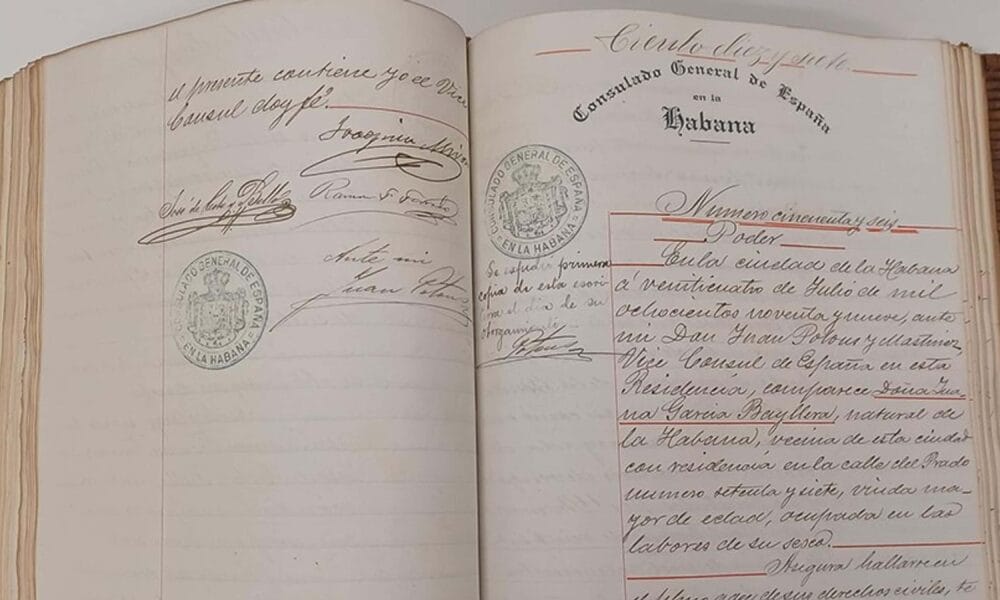 el presente contiene yo el Vice
Consul doy fé.
Joaquin
José de
Ramon F.
CONSULADO GENERAL DE ESPAÑA
EN LA HABANA
Ante mi
Juan Potous
Ciento diez y siete
Consulado General de España
en la
Habana
CONSULADO GENERAL DE ESPAÑA
EN LA HABANA
Se espidió primera
copia de esta escri
tura el dia de su
otorgamiento
Potous
Numero cincuenta y seis
Poder
En la ciudad de la Habana
á veinticuatro de Julio de mil
ochocientos noventa y nueve, ante
mi Don Juan Potous y Martinez,
Vice Consul de España en esta
Residencia, comparece Doña Jua-
na Garcia Bayllera, natural de
la Habana, vecina de esta ciudad
con residencia en la calle del Prado
numero setenta y siete, viuda ma-
yor de edad, ocupada en las
labores de su sexo.
Asegura hallarse en
el pleno de sus derechos civiles, te